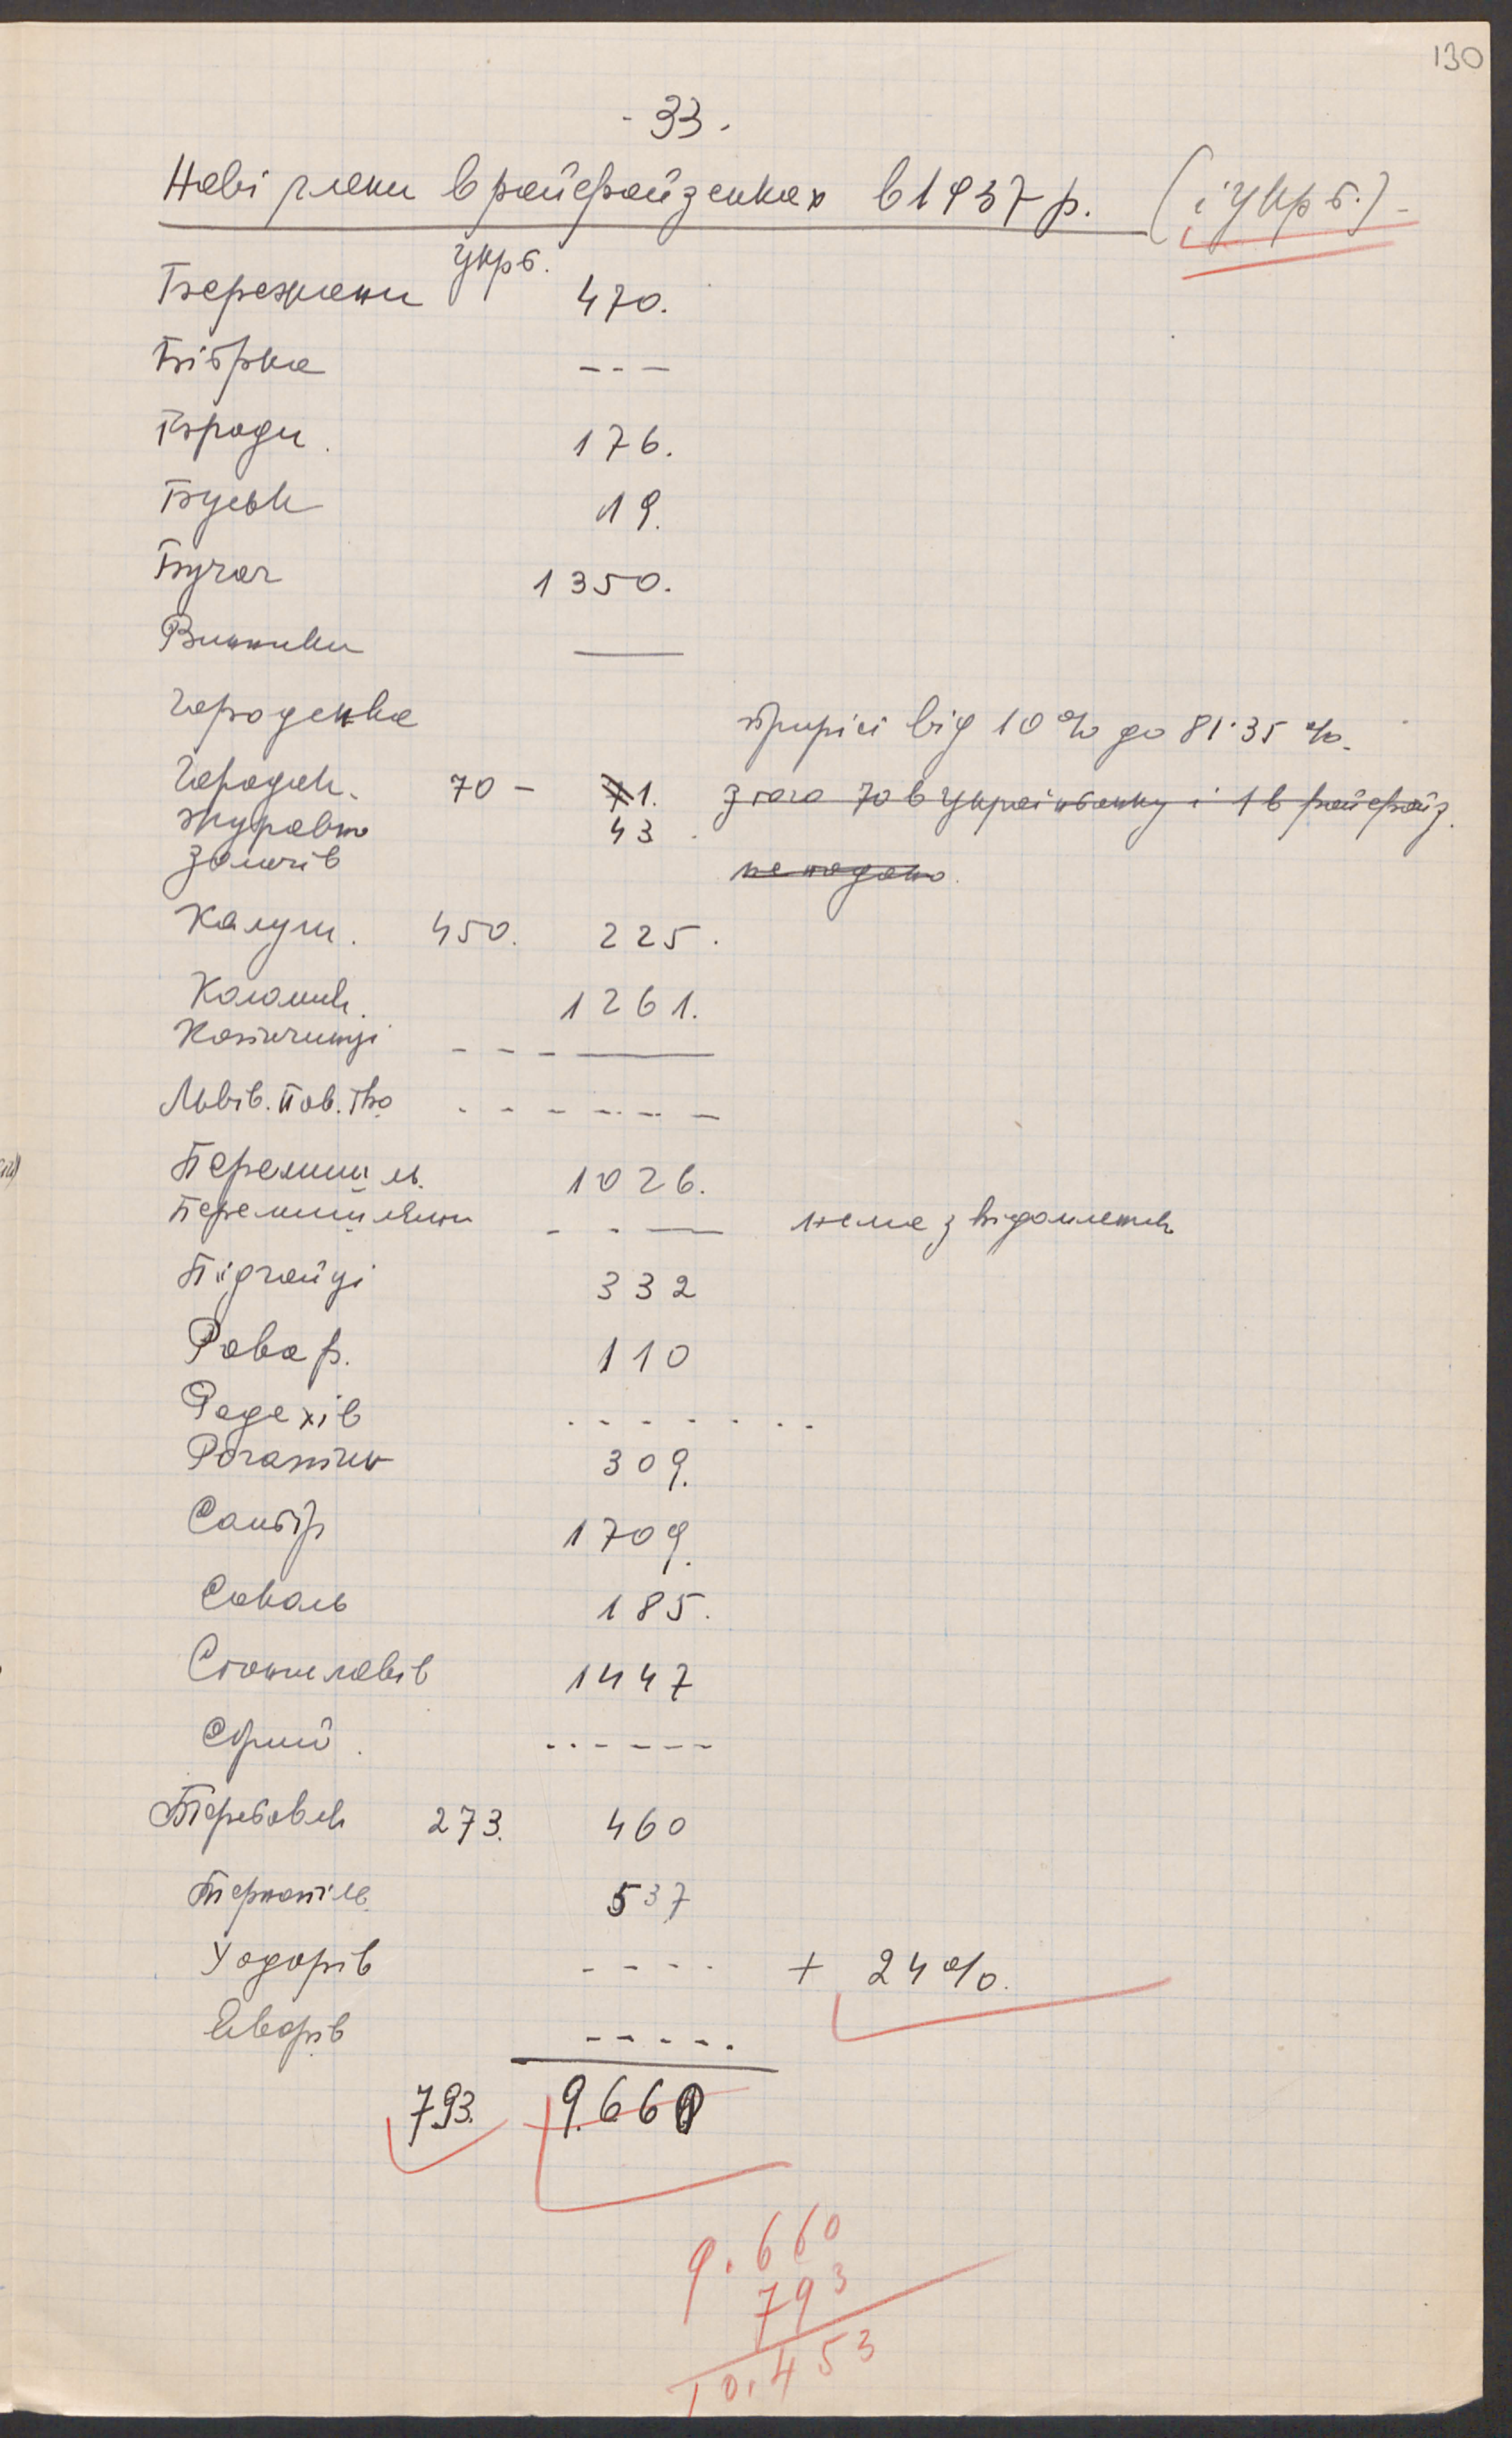 130
- 33 -
Нові члени в райфайзенках в 1937 р. (і Укрб.) -
Укрб.
Бережани 470.
Бібрка - - -
Броди. 176.
Буськ 19.
Бучач 1350.
Винники —
Городенка приріст від 10% до 81·35 %.
Городок. 70 - 1. з того 70 в Українбанку і 1 в райфайз.
Журавно 43.
Золочів не подано.
Калуш. 450. 225.
Коломия. 1261.
Копичинці - - - —
Львів. пов. тво - - - - - - -
Перемишль. 1026.
Перемишляни - - — нема звідомлень
Підгайці 332
Рава р. 110
Радехів - - - - - - -
Рогатин 309.
Самбір 1709.
Сокаль 185.
Станиславів 1447
Стрий. - - - - - -
Теребовля 273. 460
Тернопіль 537
Ходорів - - - - + 24%.
Яворів - - - - -
793. 9.660
9.660
793
10.453